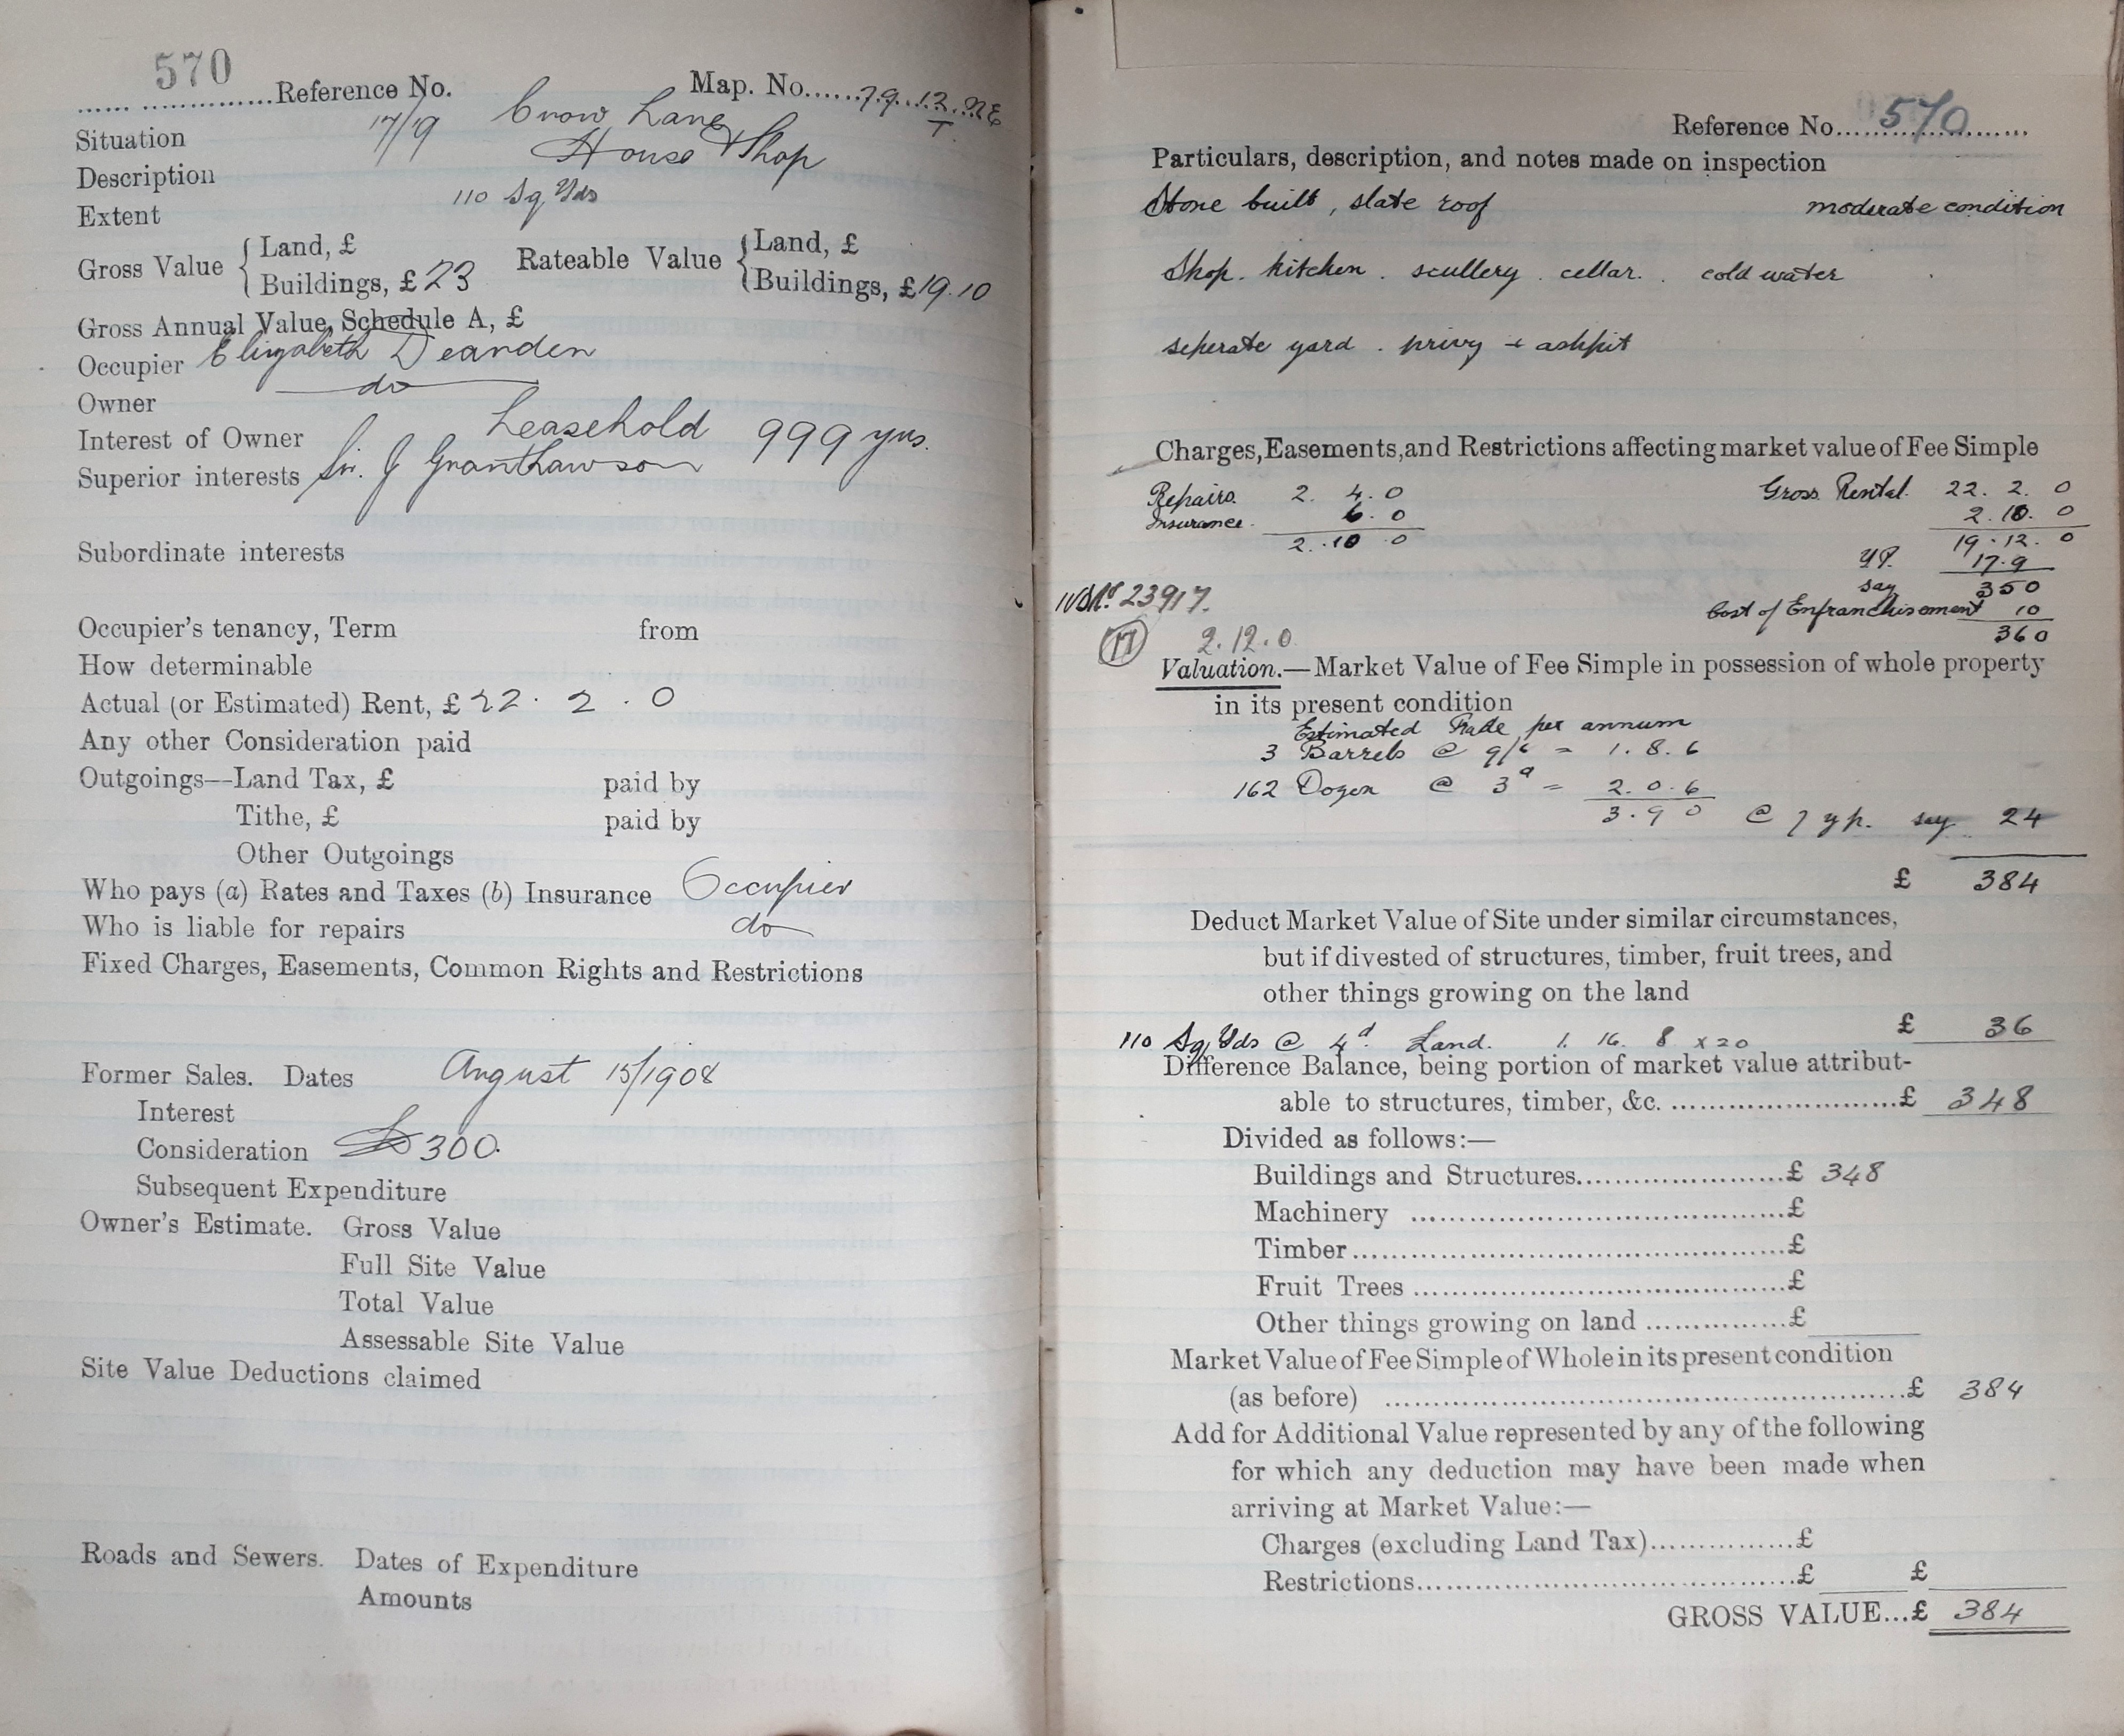 570
Reference No. Map. No. 79.12.NE
T.
Situation 17/19 Crow Lane
Description House & Shop
Extent 110 Sq Yds
Gross Value { Land, £ Rateable Value { Land, £
Buildings, £23 Buildings, £19.10
Gross Annual Value, Schedule A, £
Occupier Elizabeth Dearden
Owner do
Interest of Owner Leasehold 999 yrs.
Superior interests J
Subordinate interests
Occupier's tenancy, Term from
How determinable
Actual (or Estimated) Rent, £22. 2. 0
Any other Consideration paid
Outgoings—Land Tax, £ paid by
Tithe, £ paid by
Other Outgoings
Who pays (a) Rates and Taxes (b) Insurance Occupier
Who is liable for repairs do
Fixed Charges, Easements, Common Rights and Restrictions
Former Sales. Dates August 15/1908
Interest
Consideration £300.
Subsequent Expenditure
Owner's Estimate. Gross Value
Full Site Value
Total Value
Assessable Site Value
Site Value Deductions claimed
Roads and Sewers. Dates of Expenditure
Amounts
Reference No. 570
Particulars, description, and notes made on inspection
Stone built, slate roof moderate condition
Shop. kitchen. scullery. cellar. cold water
seperate yard. privy + ashpit
Charges, Easements, and Restrictions affecting market value of Fee Simple
Repairs. 2. 4. 0 Gross Rental. 22. 2. 0
Insurance. 6. 0 2. 10. 0
2. 10. 0 19. 12. 0
YP. 17.9
say 350
Cost of Enfranchisement 10
360
23917.
17 2.12.0
Valuation.—Market Value of Fee Simple in possession of whole property
in its present condition
Estimated Trade per annum
3 Barrels @ 9/6 = 1. 8. 6
162 Dozen @ 3d = 2. 0. 6
3. 9. 0 @ 7 yp. say 24
£ 384
Deduct Market Value of Site under similar circumstances,
but if divested of structures, timber, fruit trees, and
other things growing on the land
110 Sq Yds @ 4d. Land. 1. 16. 8 x 20 £ 36
Difference Balance, being portion of market value attribut-
able to structures, timber, &c. £ 348
Divided as follows:—
Buildings and Structures £ 348
Machinery £
Timber £
Fruit Trees £
Other things growing on land £
Market Value of Fee Simple of Whole in its present condition
(as before) £ 384
Add for Additional Value represented by any of the following
for which any deduction may have been made when
arriving at Market Value:—
Charges (excluding Land Tax) £
Restrictions £ £
GROSS VALUE...£ 384